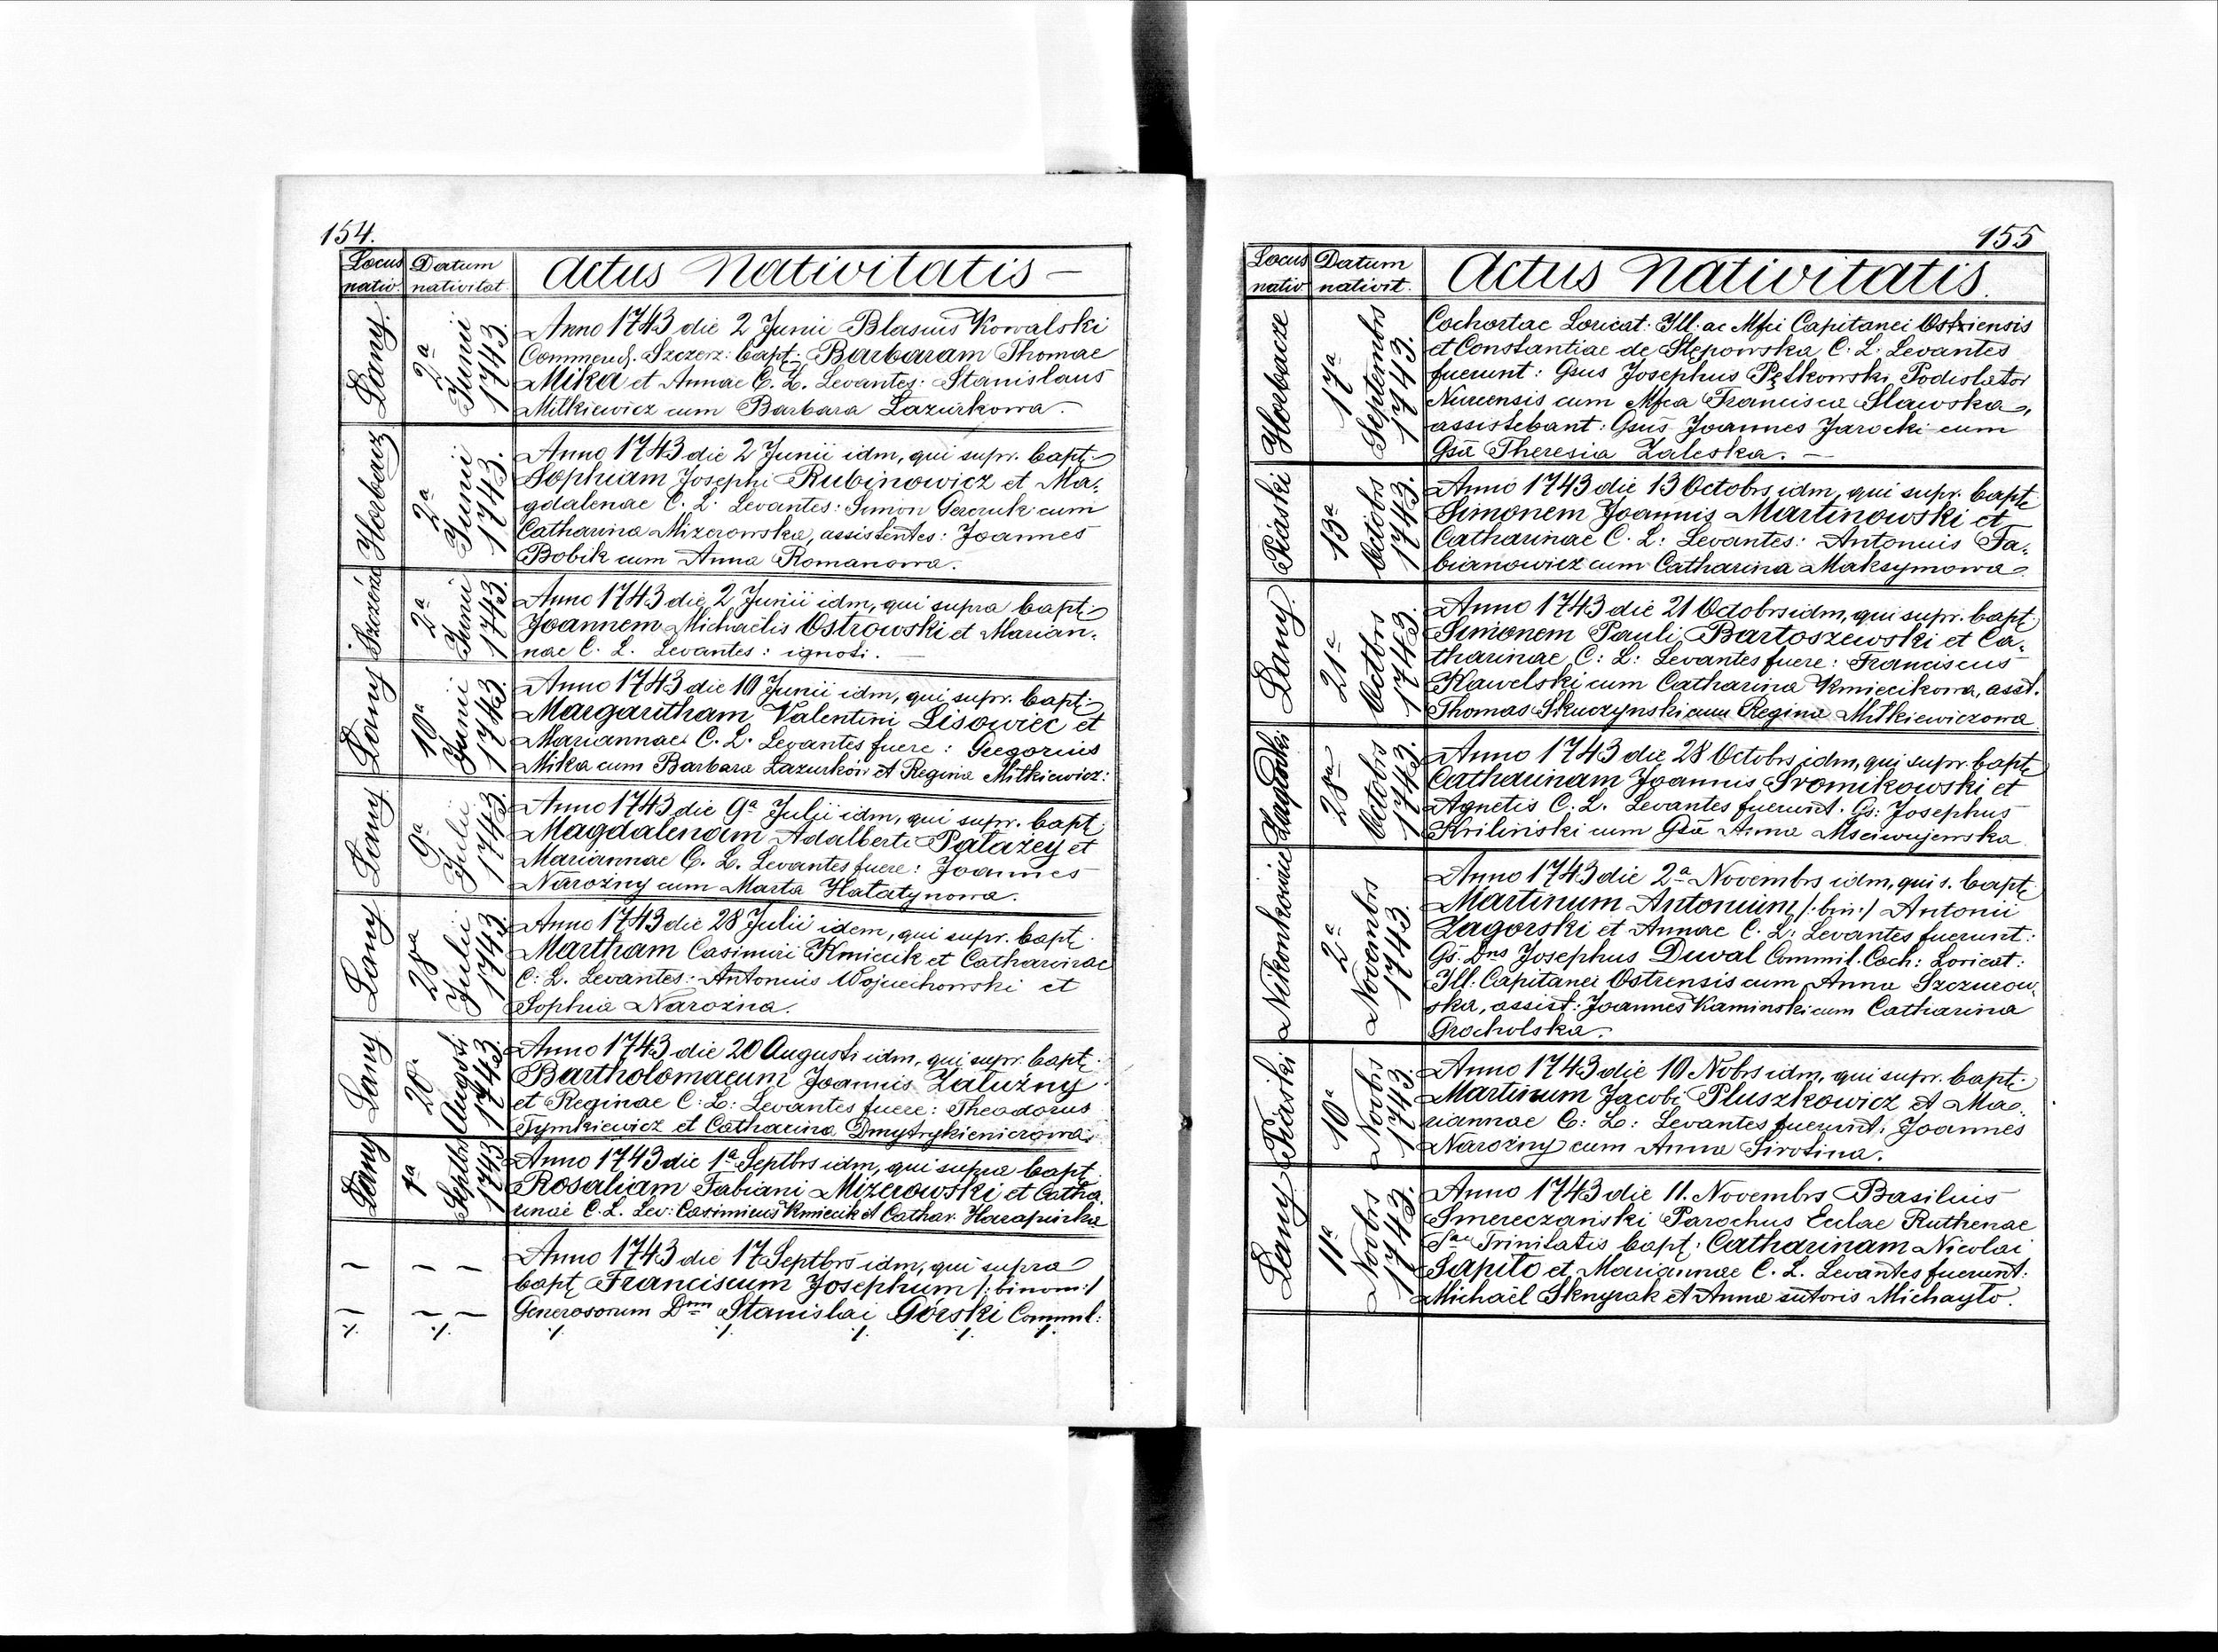 154.
Locus nativ. Datum nativitat. Actus Nativitatis —
Łany 2a Junii 1743.
Anno 1743 die 2 Junii Blasius Kowalski
Commend. Szczerz: bapt: Barbaram Thomae
Mika et Annae C. L. Levantes: Stanislaus
Mitkiewicz cum Barbara Lazurkowa.
Horbacz 2a Junii 1743.
Anno 1743 die 2 Junii idm, qui supr. bapt:
Sophiam Josephi Rubinowicz et Ma-
gdalenae C. L. Levantes: Simon Gerczuk cum
Catharina Mizerowska, assistentes: Joannes
Bobik cum Anna Romanowa.
2a Junii 1743.
Anno 1743 die 2 Junii idm, qui supra bapt:
Joannem Michaëlis Ostrowski et Marian-
nae C. L. Levantes: ignoti.
Łany 10a Junii 1743
Anno 1743 die 10 Junii idm, qui supr. bapt:
Margaritham Valentini Lisowiec et
Mariannae C. L. Levantes fuere: Gregorius
Mika cum Barbara Lazurków et Regina Mitkiewicz:
Łany 9a Julii 1743
Anno 1743 die 9a Julii idm, qui supr. bapt.
Magdalenam Adalberti Patazey et
Mariannae C. L. Levantes fuere: Joannes
Narożny cum Marta Hatatynowa.
Łany 28va Julii 1743
Anno 1743 die 28 Julii idem, qui supr. bapt.
Martham Casimiri Kmiecik et Catharinae
C: L. Levantes: Antonius Wojciechowski et
Sophia Narożna.
Łany 20a Augsti 1743
Anno 1743 die 20 Augusti idm, qui supr. bapt.
Bartholomaeum Joannis Załużny
et Reginae C: L: Levantes fuere: Theodorus
Tymkiewicz et Catharina Dmytrykieniczowa.
Łany 1a Septbrs 1743
Anno 1743 die 1a Septbrs idm, qui supra bapt.
Rosaliam Fabiani Mizerowski et Catha
rinae C. L. Lev: Casimirus Kmiecik et Cathar. Harapinka
— — —
Anno 1743 die 17 Septbrs idm, qui supra
bapt. Franciscum Josephum /: binom:/
— — —
Generosorum Dnm Stanislai Górski Commil:
./. ./. ./. ./. ./. ./. ./.
155
Locus nativ Datum nativit. Actus Nativitatis.
Horbacze 17a Septembrs 1743.
Cohortae Loricat: Ill. ac Mfci Capitanei Ostriensis
et Constantiae de Stępowska C. L. Levantes
fuerunt: Gsus Josephus Pętkowski Podislator
Nurensis cum Mfca Francisca Slawska,
assistebant: Gsus Joannes Jarocki cum
Gsā Theresia Zaleska. —
Piaski 13a Octobrs 1743.
Anno 1743 die 13 Octobrs idm, qui supr. bapt.
Simonem Joannis Martinowski et
Catharinae C. L: Levantes: Antonius Fa-
bianowicz cum Catharina Maksymowa.
Łany 21a Octbrs 1743.
Anno 1743 die 21 Octobrs idm, qui supr. bapt.
Simonem Pauli Bartoszewski et Ca-
tharinae C: L: Levantes fuere: Franciscus
Kawelski cum Catharina Kmiecikowa, asst.
Thomas Skuczynski cum Regina Mitkiewiczowa
28va Octobrs 1743.
Anno 1743 die 28 Octobrs idm, qui supr. bapt.
Catharinam Joannis Sromikowski et
Agnetis C. L. Levantes fuerunt. Gs: Josephus
Kriliński cum Gsā Anna Msciwujewska
Nikonkowice 2a Novembrs 1743.
Anno 1743 die 2a Novembrs idm, qui s. bapt.
Martinum Antonium /: bin:/ Antonii
Zagorski et Annae C. L: Levantes fuerunt:
Gs. Dns Josephus Duval Commil. Coch: Loricat:
Ill. Capitanei Ostrensis cum Anna Szczurow-
ska, assist: Joannes Kaminski cum Catharina
Grocholska.
Piaski 10a Novbrs 1743.
Anno 1743 die 10 Nobrs idm, qui supr. bapt.
Martinum Jacobi Pluszkowicz et Ma-
riannae C: L: Levantes fuerunt: Joannes
Narożny cum Anna Sirotina.
Łany 11a Novbrs 1743.
Anno 1743 die 11. Novembrs Basilius
Smereczański Parochus Eclae Ruthenae
Sae Trinitatis bapt: Catharinam Nicolai
Sapito et Mariannae C. L. Levantes fuerunt:
Michaël Sknyrak et Anna sutoris Michayło.